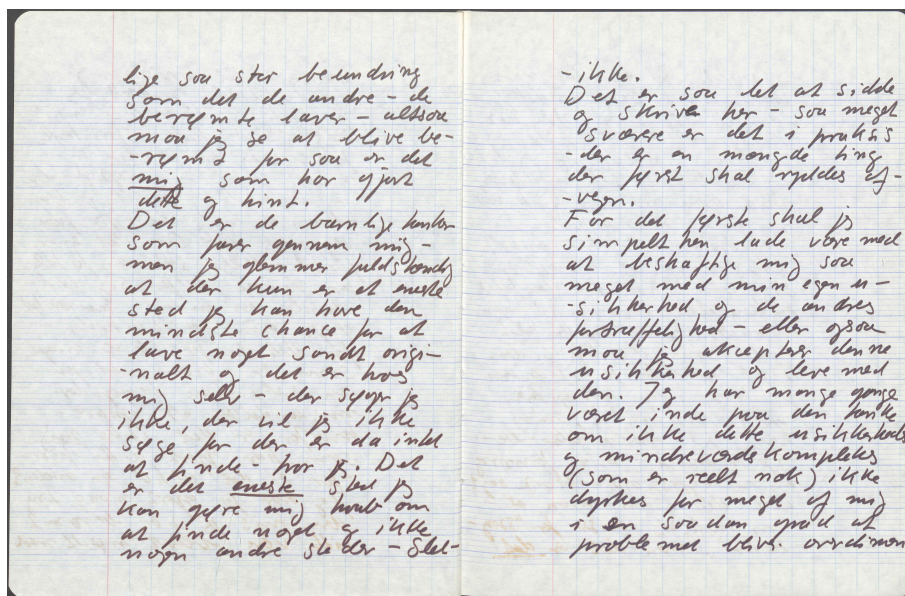 lige saa stor beundring
som det de andre - de
berømte laver - altsaa
maa jeg se at blive be-
-rømt for saa er det
mig som har gjort
dette og hint.
Det er de barnlige tanker
som farer gennem mig -
men jeg glemmer fuldstændig
at der kun er et eneste
sted jeg kan have den
mindste chance for at
lave noget sandt origi-
-nalt og det er hos
mig selv - der søger jeg
ikke, der vil jeg ikke
søge for der er da intet
at finde - tror jeg. Det
er det eneste sted jeg
kan gøre mig haab om
at finde noget og ikke
nogen andre steder - Slet-
-ikke.
Det er saa let at sidde
og skrive her - saa meget
sværere er det i praksis
- der er en mængde ting
der først skal ryddes af-
-vejen.
For det første skal jeg
simpelthen lade være med
at beskæftige mig saa
meget med min egen u-
-sikkerhed og de andres
fortræffelighed - eller ogsaa
maa jeg akceptere denne
usikkerhed og leve med
den. Jeg har mange gange
været inde paa den tanke
om ikke dette usikkerheds
og mindreværdskompleks
(som er reelt nok) ikke
dyrkes for meget af mig
i en saadan grad at
problemet bliver overdimen